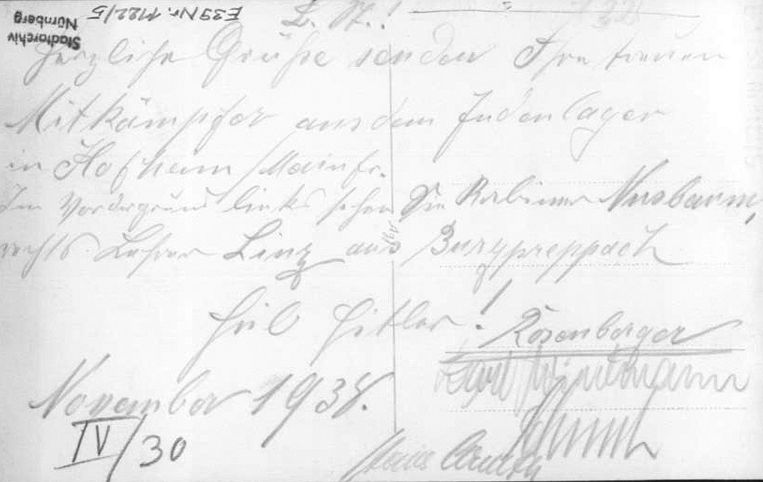 E39 Nr. 1122/5
Stadtarchiv
Nürnberg
L. St.!
Herzliche Grüße senden Ihre treuen
Mitkämpfer aus dem Judenlager
in Hofheim / Mainfr.
Im Vordergrund links sehen Sie Rabiner Nusbaum,
rechts Lehrer Linz aus Burgpreppach
Heil Hitler!
Rosenberger
Karl
November 1938.
IV/30
Hans